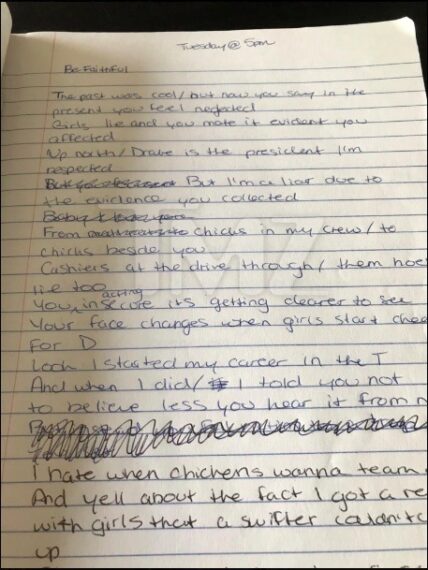 Tuesday @ 5pm
Be Faithful
The past was cool/ but now you sayin in the
present you feel neglected
Girls lie and you make it evident you
affected
Up north/ Drake is the president I'm
respected
But I'm a liar due to
the evidence you collected
From chicks in my crew/ to
chicks beside you
Cashiers at the drive through/ them hoes
lie too
acting
You insecure its getting clearer to see
Your face changes when girls start chee
For D
Look I started my career in the T
And when I did/ I told you not
to believe less you hear it from m
I hate when chickens wanna team
And yell about the fact I got a re
with girls that a swifter couldnt c
up
TMZ